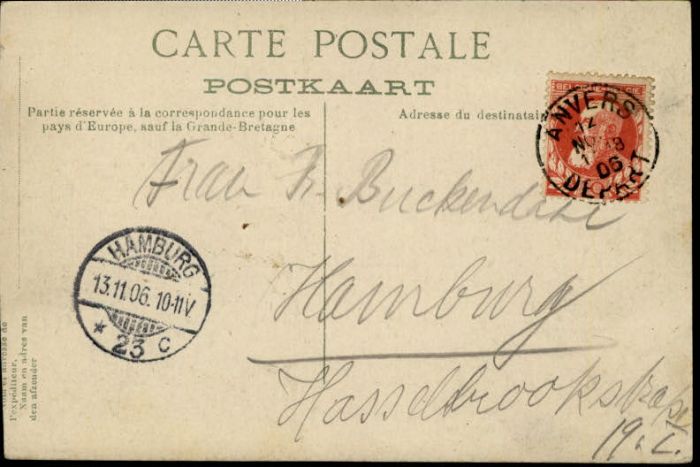 CARTE POSTALE
POSTKAART
Partie réservée à la correspondance pour les
pays d'Europe, sauf la Grande-Bretagne
Adresse du destinatai
ANVERS
12
NOV
18
06
DEPART
Frau
Hamburg
Hasselbrookstrasse
19. I.
HAMBURG
13.11.06. 10-11V
* 23 c
l'expéditeur.
Naam en adres van
den afzender